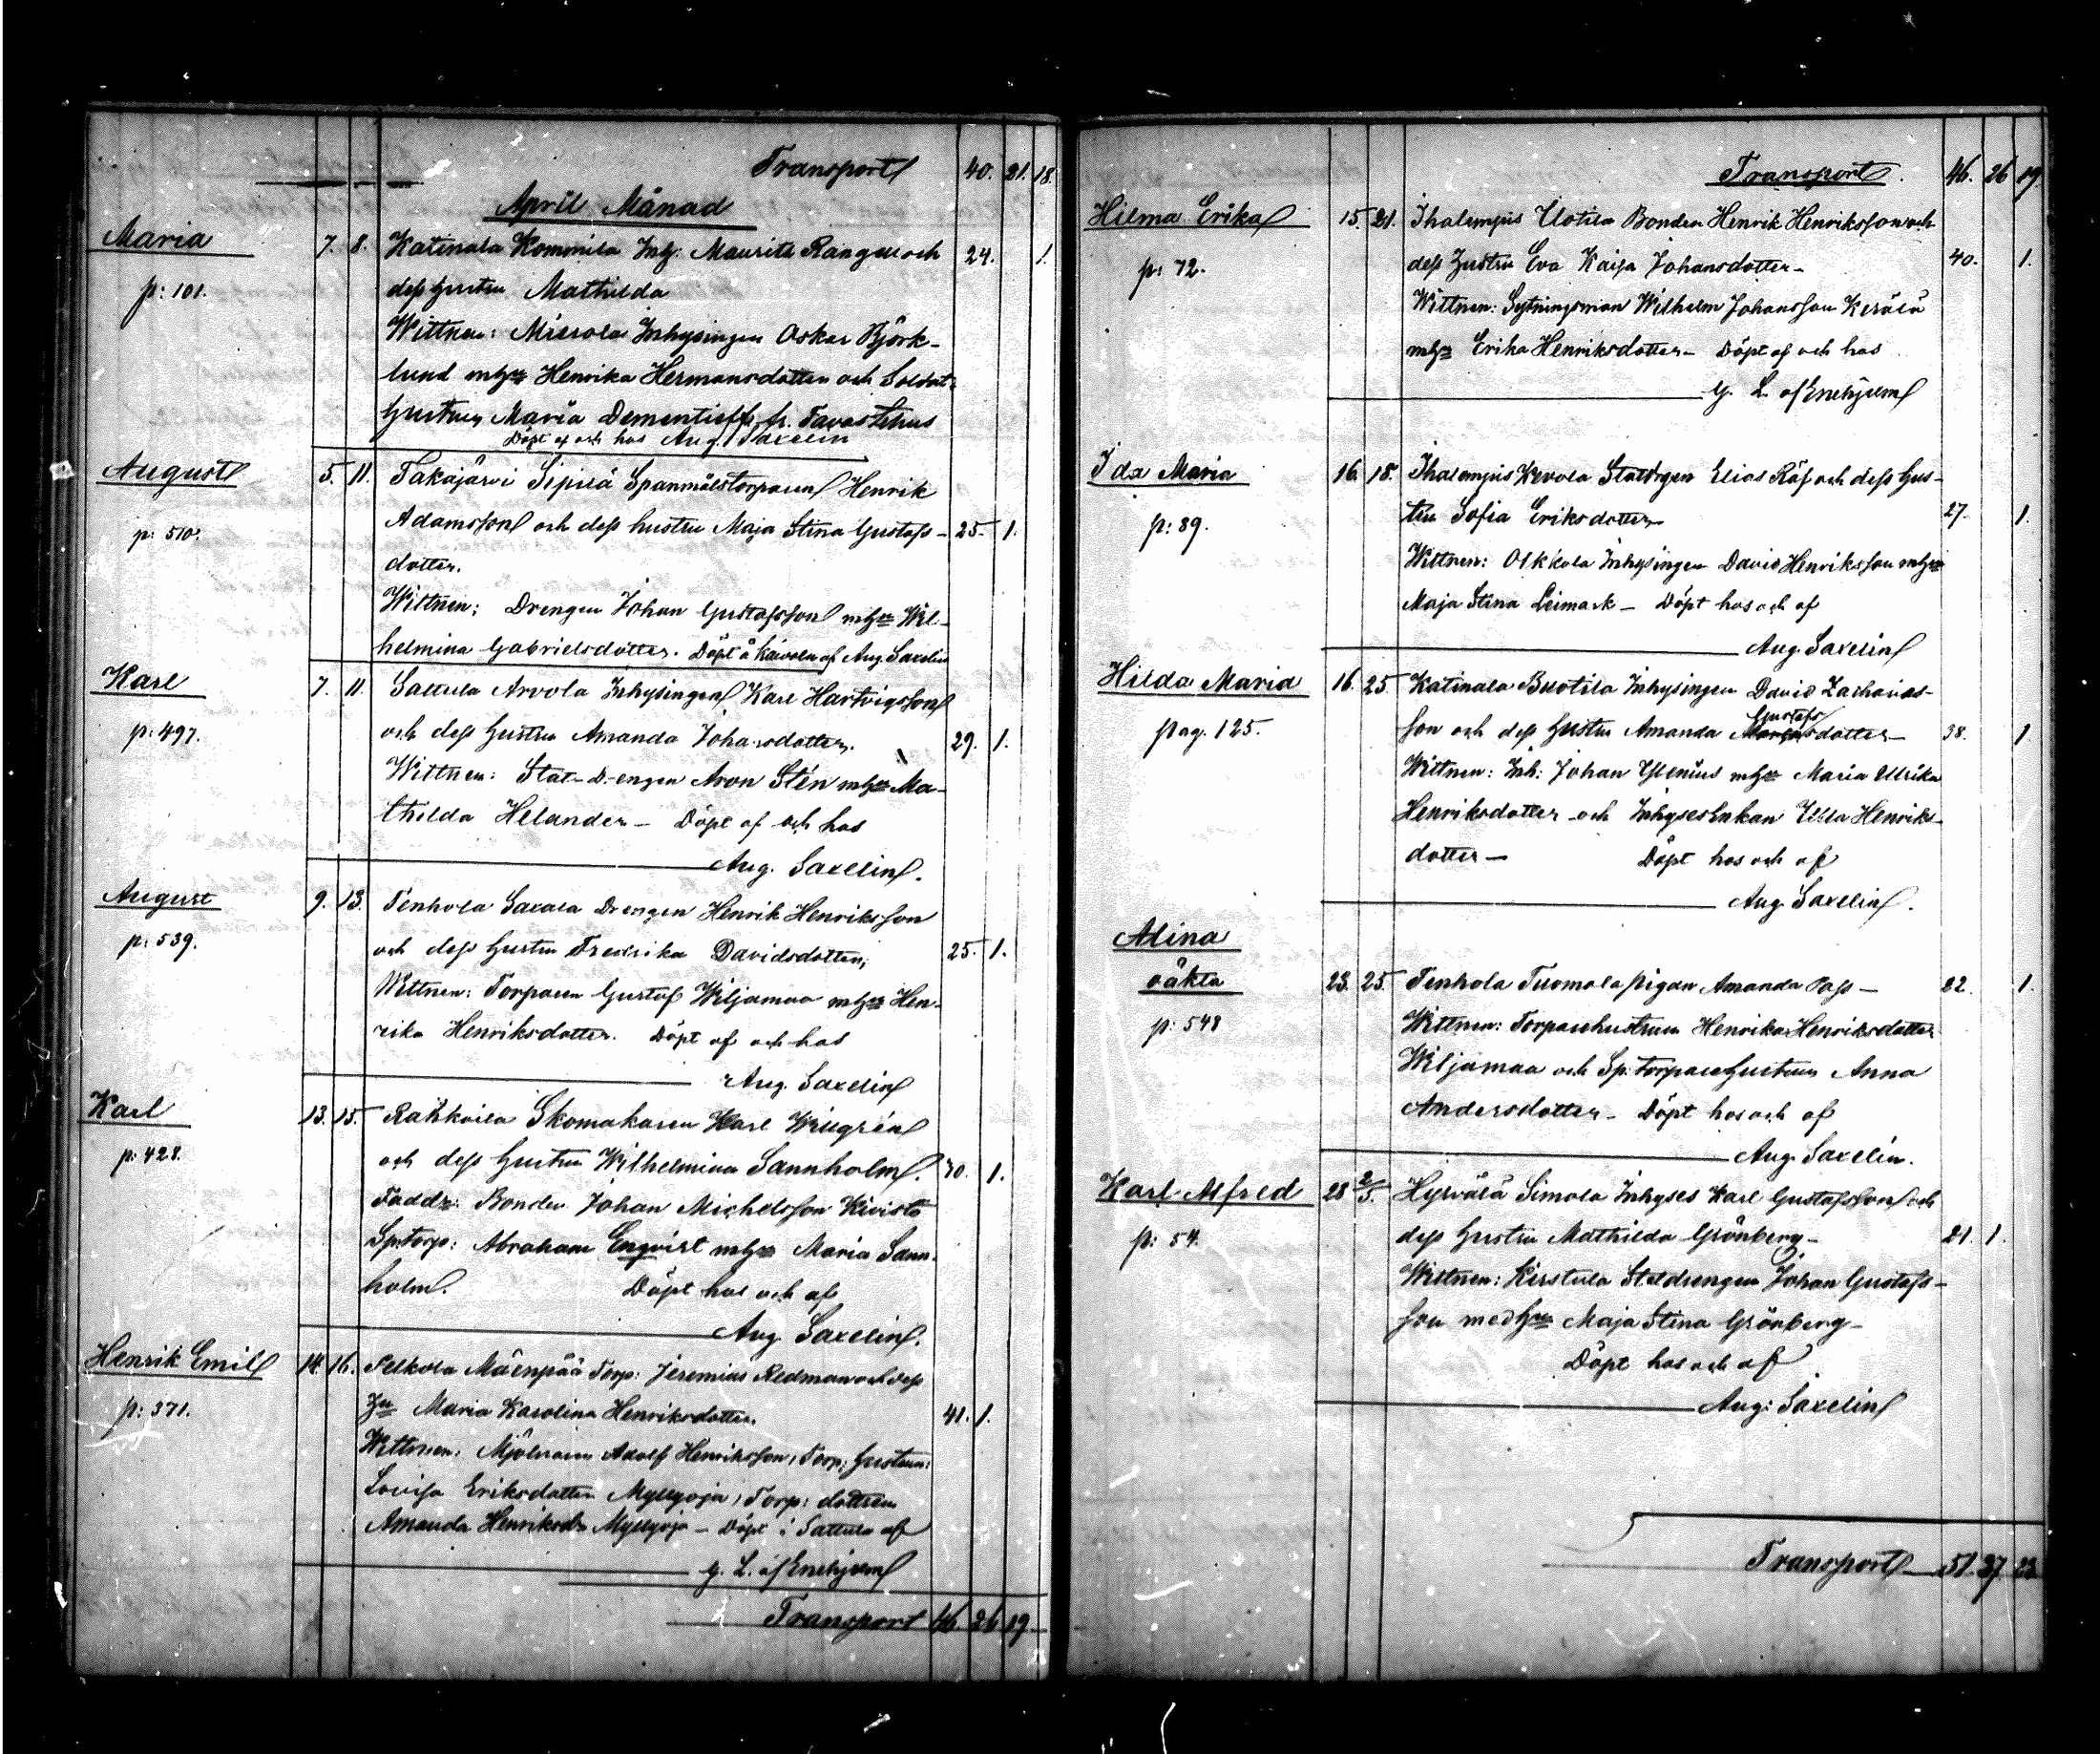 Transport 40. 21. 18.
April Månad
Maria 7. 8. Katinala Kommila Inh. Maurits Rangen och 24. 1.
p: 101. dess hustru Mathilda
Wittnen: Mierola Inhysingen Oskar Björk-
lund m hu Henrika Hermansdotter och Soldat-
hustrun Maria Dementieff fr. Tavastehus
Döpt af och hos Aug. Saxelin
August 5. 11. Takajärvi Sipilä Spanmålstorparen Henrik
p: 510. Adamsson och dess hustru Maja Stina Gustafs- 25. 1.
dotter.
Wittnen: Drengen Johan Gustafsson m hu Wil-
helmina Gabrielsdotter. Döpt å af Aug. Saxelin
Karl 7. 11. Sattula Arvola Inhysingen Karl Hartvigsson
p: 497. och dess hustru Amanda Johansdotter. 29. 1.
Wittnen: Stat-Drengen Aron Stén m hu Ma-
thilda Helander – Döpt af och hos
Aug. Saxelin.
August 9. 13. Tenhola Saxala Drengen Henrik Henriksson
p: 539. och dess hustru Fredrika Davidsdotter, 25. 1.
Wittnen: Torparen Gustaf Wiljamaa m hu Hen-
rika Henriksdotter. Döpt af och hos
Aug. Saxelin
Karl 13. 15. Rahkoila Skomakaren Karl Willgrén
p: 428. och dess hustru Wilhelmina Sannholm. 30. 1.
Faddr: Bonden Johan Michelsson Kivistö
Sp:torp: Abraham Enqvist m hu Maria Sann-
holm. Döpt hos och af
Aug. Saxelin.
Henrik Emil 14. 16. Pelkola Mäenpää Torp: Jeremias Redman och dess
p: 371. hu Maria Karolina Henriksdotter. 41. 1.
Wittnen: Mjölnaren Adolf Henriksson, Torp: hustrun:
Lovisa Eriksdotter Myllyoja, Torp: dottren
Amanda Henriksdr Myllyoja – Döpt i Sattula af
G. L. af Enehjelm
Transport 46 26 19
Transport. 46. 26 19
Hilma Erika 15. 21. Ihalempis Uotila Bonden Henrik Henriksson och
p: 72. dess hustru Eva Kaisa Johansdotter – 40. 1.
Wittnen: Sytningsman Wilhelm Johansson Kerälä
m hu Erika Henriksdotter – Döpt af och hos
G. L. af Enehjelm
Ida Maria 16. 18. Ihalempis Kevola Statdrgen Elias Räf och dess hus-
p: 89. tru Sofia Eriksdotter 27. 1.
Wittnen: Olkkola Inhysingen David Henriksson m hu
Maja Stina Leimark – Döpt hos och af
Aug. Saxelin
Hilda Maria 16. 25. Katinala Buotila Inhysingen David Zacharias-
pag. 125. son och dess hustru Amanda Gustafsdotter – 38. 1
Wittnen: Inh: Johan Ylenius m hu Maria Ulrika
Henriksdotter och Inhysesenkan Ulla Henriks-
dotter – Döpt hos och af
Aug. Saxelin.
Alina
oäkta 23. 25. Tenhola Tuomola pigan Amanda Pass – 22. 1.
p: 548 Wittnen: Torparehustrun Henrika Henriksdotter
Wiljamaa och Sp: torparehustrun Anna
Andersdotter – Döpt hos och af
Aug. Saxelin.
Karl Alfred 28 2/5. Hyrvälä Simola Inhyses Karl Gustafsson och
p: 54. dess hustru Mathilda Grönberg – 21. 1.
Wittnen: Kirstula Statdrengen Johan Gustafs-
son med hu Maja Stina Grönberg –
Döpt hos och af
Aug: Saxelin
Transport 51. 27 23